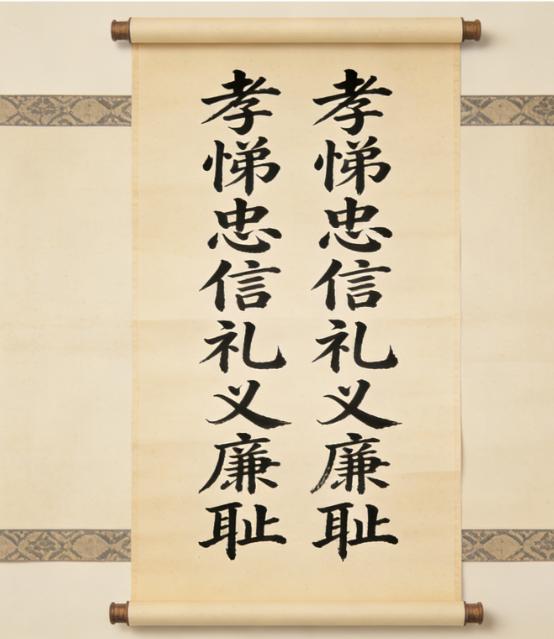 孝悌忠信礼义廉耻
孝悌忠信礼义廉耻